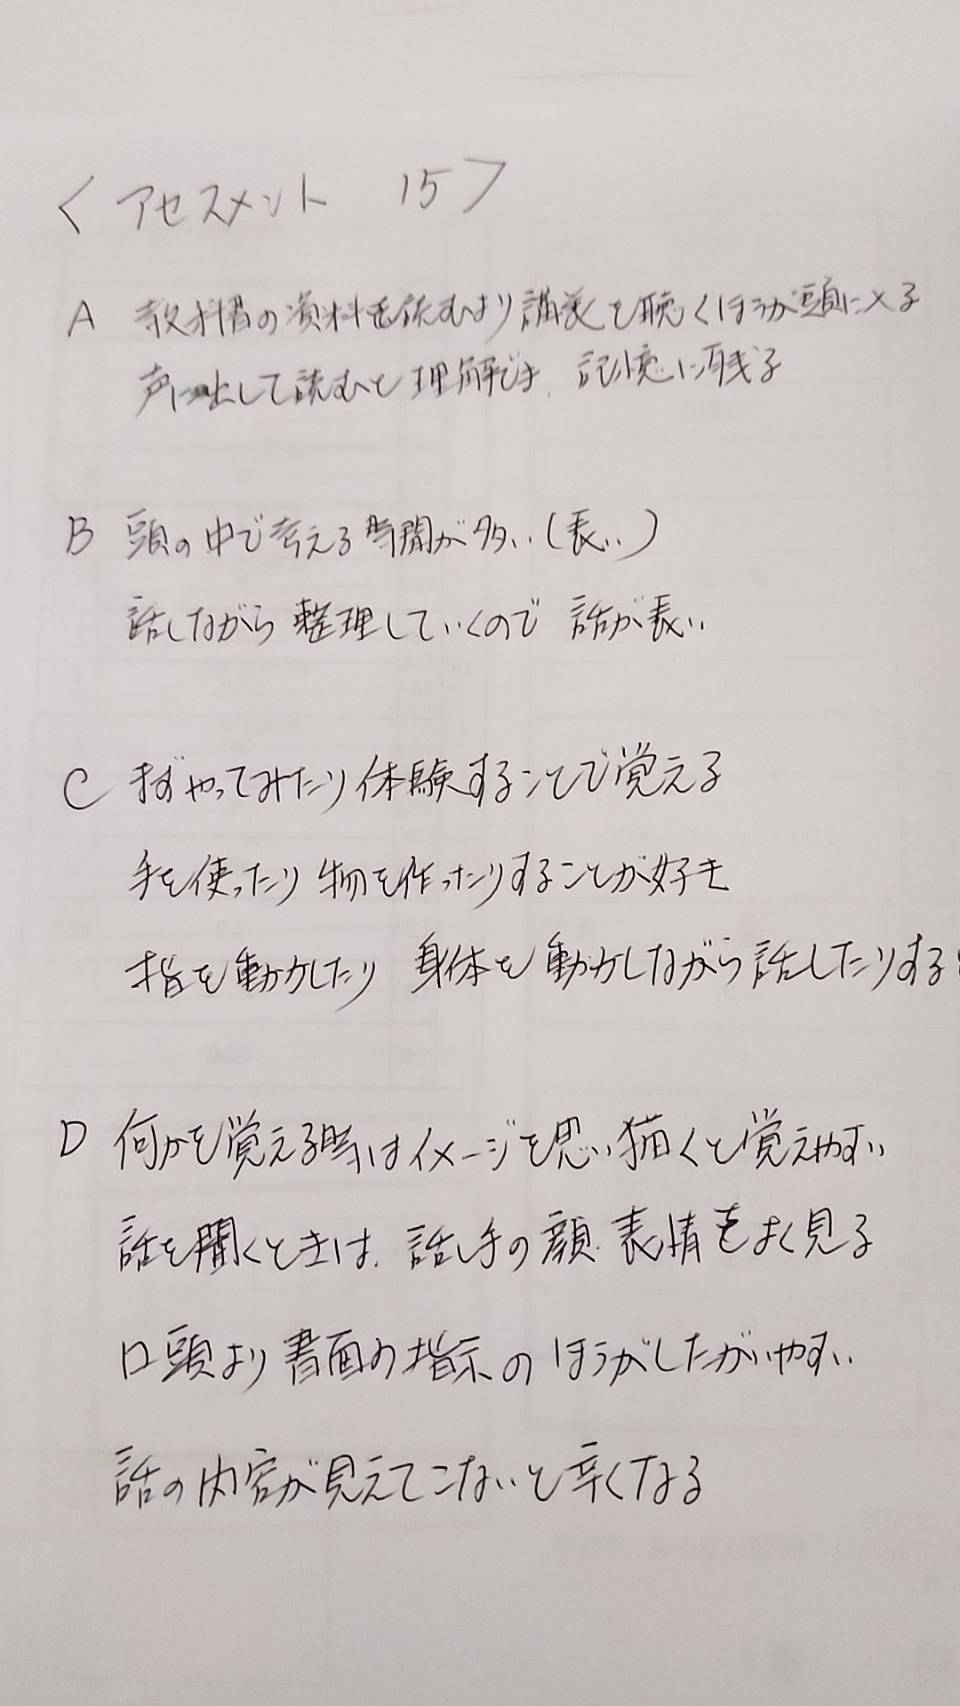 < アセスメント 15 >
A 教科書の資料を読むより講義を聴くほうが頭に入る
声に出して読むと理解でき、記憶に残る
B 頭の中で考える時間が多い(長い)
話しながら整理していくので 話が長い
C まずやってみたり体験することで覚える
手を使ったり 物を作ったりすることが好き
指を動かしたり 身体を動かしながら話したりする
D 何かを覚える時はイメージを思い描くと覚えやすい
話を聞くときは、話し手の顔、表情をよく見る
口頭より書面の指示のほうがしたがいやすい
話の内容が見えてこないと辛くなる